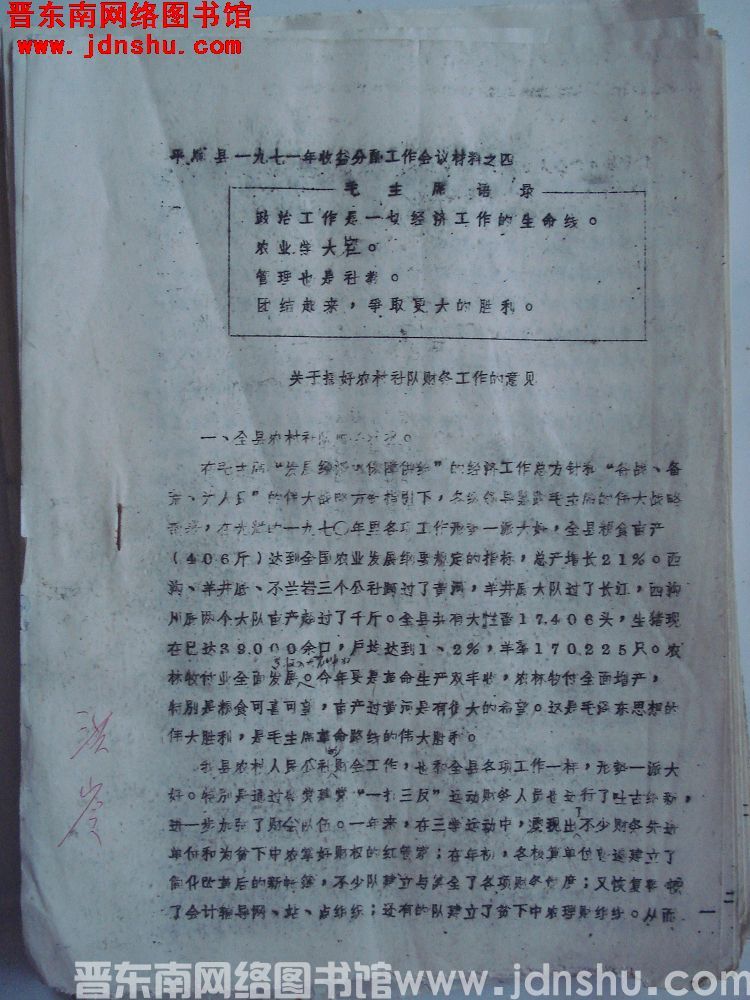 晋东南网络图书馆
www.jdnshu.com
平顺县一九七一年收益分配工作会议材料之四
毛主席语录
政治工作是一切经济工作的生命线。
农业学大寨。
管理也是社教。
团结起来，争取更大的胜利。
关于搞好农村社队财务工作的意见
一、全县农村社队
在毛主席“发展经济，保障供给”的经济工作总方针和“备战、备
荒、为人民”的伟大战略方针指引下，各级领导紧跟毛主席的伟大战略
在光辉的一九七〇年里各项工作形势一派大好，全县粮食亩产
（406斤）达到全国农业发展纲要规定的指标，总产增长21%。西
沟、羊井底、不兰岩三个公社跨过了黄河，羊井底大队过了长江，西沟
川底两个大队亩产超过了千斤。全县共有大牲畜17.406头，生猪现
在已达39.000余口，户均达到1、2%，羊群170.225只。农
林牧付业全面发展。今年更是革命生产双丰收，农林牧付全面增产，
特别是粮食可喜可望，亩产过黄河是有伟大的希望。这是毛泽东思想的
伟大胜利，是毛主席革命路线的伟大胜利。
我县农村人民公社的财会工作，也和全县各项工作一样，形势一派大
好。特别是通过整党建党“一打三反”运动财务人员也进行了吐故纳新，
进一步加强了财会队伍。一年来，在三学运动中，涌现出了不少财务先进
单位和为贫下中农掌好财权的红管家；在年初，各核算单位普遍建立了
简化改革后的新帐簿，不少队建立与健全了各项财务制度；又恢复整顿
了会计辅导网、站、点组织；还有的队建立了贫下中农理财组织。从而
一
晋东南网络图书馆www.jdnshu.com